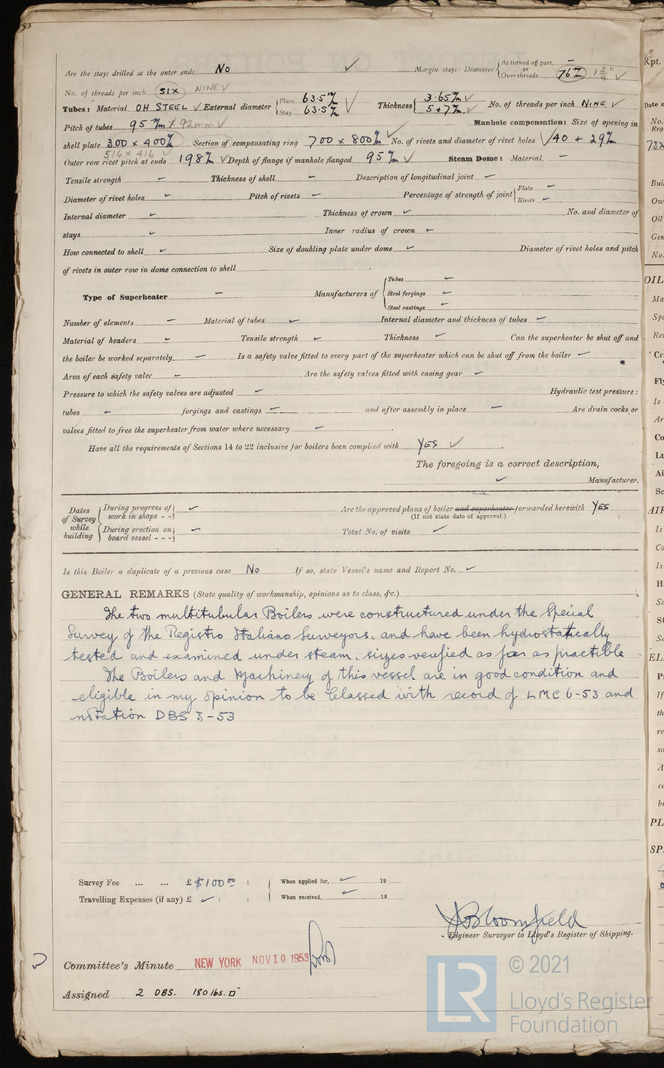 Are the stays drilled at the outer ends No ✓ Margin stays: Diameter { At turned off part, – or Over threads 76 1 3/4" ✓
No. of threads per inch SIX NINE ✓
Tubes: Material OH STEEL ✓ External diameter { Plain 63.5 Stay 63.5 ✓ Thickness { 3.65 ✓ No. of threads per inch NINE ✓
Pitch of tubes 95 × 92 mm ✓ Manhole compensation: Size of opening in
shell plate 300 × 400 Section of compensating ring 700 × 800 ✓ No. of rivets and diameter of rivet holes ✓ 40 + 29
516 × 416 ✓
Outer row rivet pitch at ends 198 ✓ Depth of flange if manhole flanged 95 ✓ Steam Dome: Material –
Tensile strength – Thickness of shell – Description of longitudinal joint –
Diameter of rivet holes – Pitch of rivets – Percentage of strength of joint { Plate – Rivets –
Internal diameter – Thickness of crown – No. and diameter of
stays – Inner radius of crown –
How connected to shell – Size of doubling plate under dome – Diameter of rivet holes and pitch
of rivets in outer row in dome connection to shell
Type of Superheater – Manufacturers of { Tubes – Steel forgings – Steel castings –
Number of elements – Material of tubes – Internal diameter and thickness of tubes –
Material of headers – Tensile strength – Thickness – Can the superheater be shut off and
the boiler be worked separately – Is a safety valve fitted to every part of the superheater which can be shut off from the boiler –
Area of each safety valve – Are the safety valves fitted with easing gear –
Pressure to which the safety valves are adjusted – Hydraulic test pressure:
tubes – forgings and castings – and after assembly in place – Are drain cocks or
valves fitted to free the superheater from water where necessary –
Have all the requirements of Sections 14 to 22 inclusive for boilers been complied with YES ✓
The foregoing is a correct description,
– Manufacturer.
Dates of Survey while building { During progress of work in shops - - } – Are the approved plans of boiler and superheater forwarded herewith YES
(If not state date of approval.)
{ During erection on board vessel - - - } – Total No. of visits –
Is this Boiler a duplicate of a previous case No If so, state Vessel's name and Report No. –
GENERAL REMARKS (State quality of workmanship, opinions as to class, &c.)
The two multitubular Boilers were constructed under the Special
Survey of the Registro Italiano Surveyors, and have been hydrostatically
tested and examined under steam, sizes verified as far as practible
The Boilers and Machinery of this vessel are in good condition and
eligible in my opinion to be Classed with record of LMC 6-53 and
notation DBS 7-53
Survey Fee ... ... £ $100 00 : : When applied for, – 19
Travelling Expenses (if any) £ – : : When received, – 19
Bloomfield
Engineer Surveyor to Lloyd's Register of Shipping.
Committee's Minute NEW YORK NOV 10 1953
Assigned 2 DBS. 180 lbs.
© 2021
LR
Lloyd's Register
Foundation